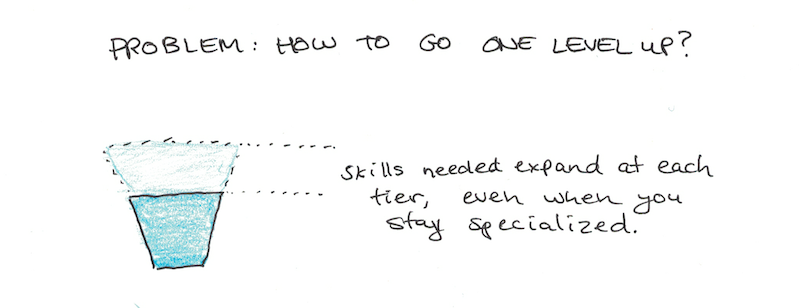 PROBLEM: HOW TO GO ONE LEVEL UP?
Skills needed expand at each
tier, even when you
stay specialized.